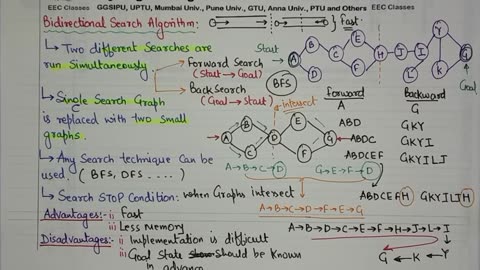 EEC Classes GGSIPU, UPTU, Mumbai Univ., Pune Univ., GTU, Anna Univ., PTU and Others EEC Classes
Bidirectional Search Algorithm:
Fast.
↳ Two different Searches are
run Simultaneously
Forward Search
(Start → Goal)
Back Search
(Goal → Start)
BFS
Start
A B C D E F H I J L Y K G
Goal
↳ Single Search Graph
is replaced with two small
graphs.
intersect
A B C D E F G
forward
A
ABD
ABDC
ABDCEF
ABDCEFH
Backward
G
GKY
GKYI
GKYILJ
GKYILJH
↳ Any Search technique Can be
used. (BFS, DFS ....)
A→B→C→D
G→E→F→D
↳ Search STOP Condition: when Graphs intersect
A→B→C→D→F→E→G
Advantages:- i) Fast
ii) Less Memory
A→B→D→C→E→F→H→J→L→I
G←K←Y
Disadvantages:- i) Implementation is difficult
ii) Goal State should be Known
in advance